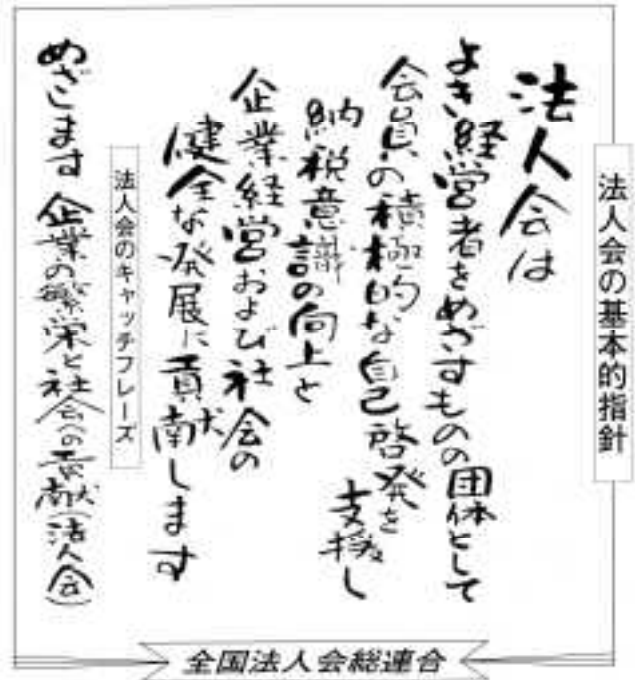 法人会の基本的指針
法人会は
よき経営者をめざすものの団体として
会員の積極的な自己啓発を
支援し
納税意識の向上と
企業経営および社会の
健全な発展に貢献します
法人会のキャッチフレーズ
めざします 企業の繁栄と社会への貢献(法人会)
全国法人会総連合